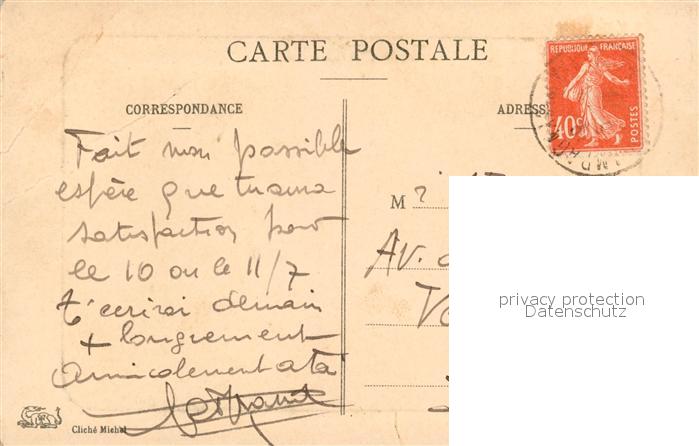 CARTE POSTALE
REPUBLIQUE FRANÇAISE
40c
POSTES
CORRESPONDANCE
ADRESS
Fait mon possible
espère que tu aura
satisfaction pour
le 10 ou le 11/7
T'ecrirai demain
+ longuement
Amicalement a ta
M
Av.
privacy protection
Datenschutz
Cliché Michel